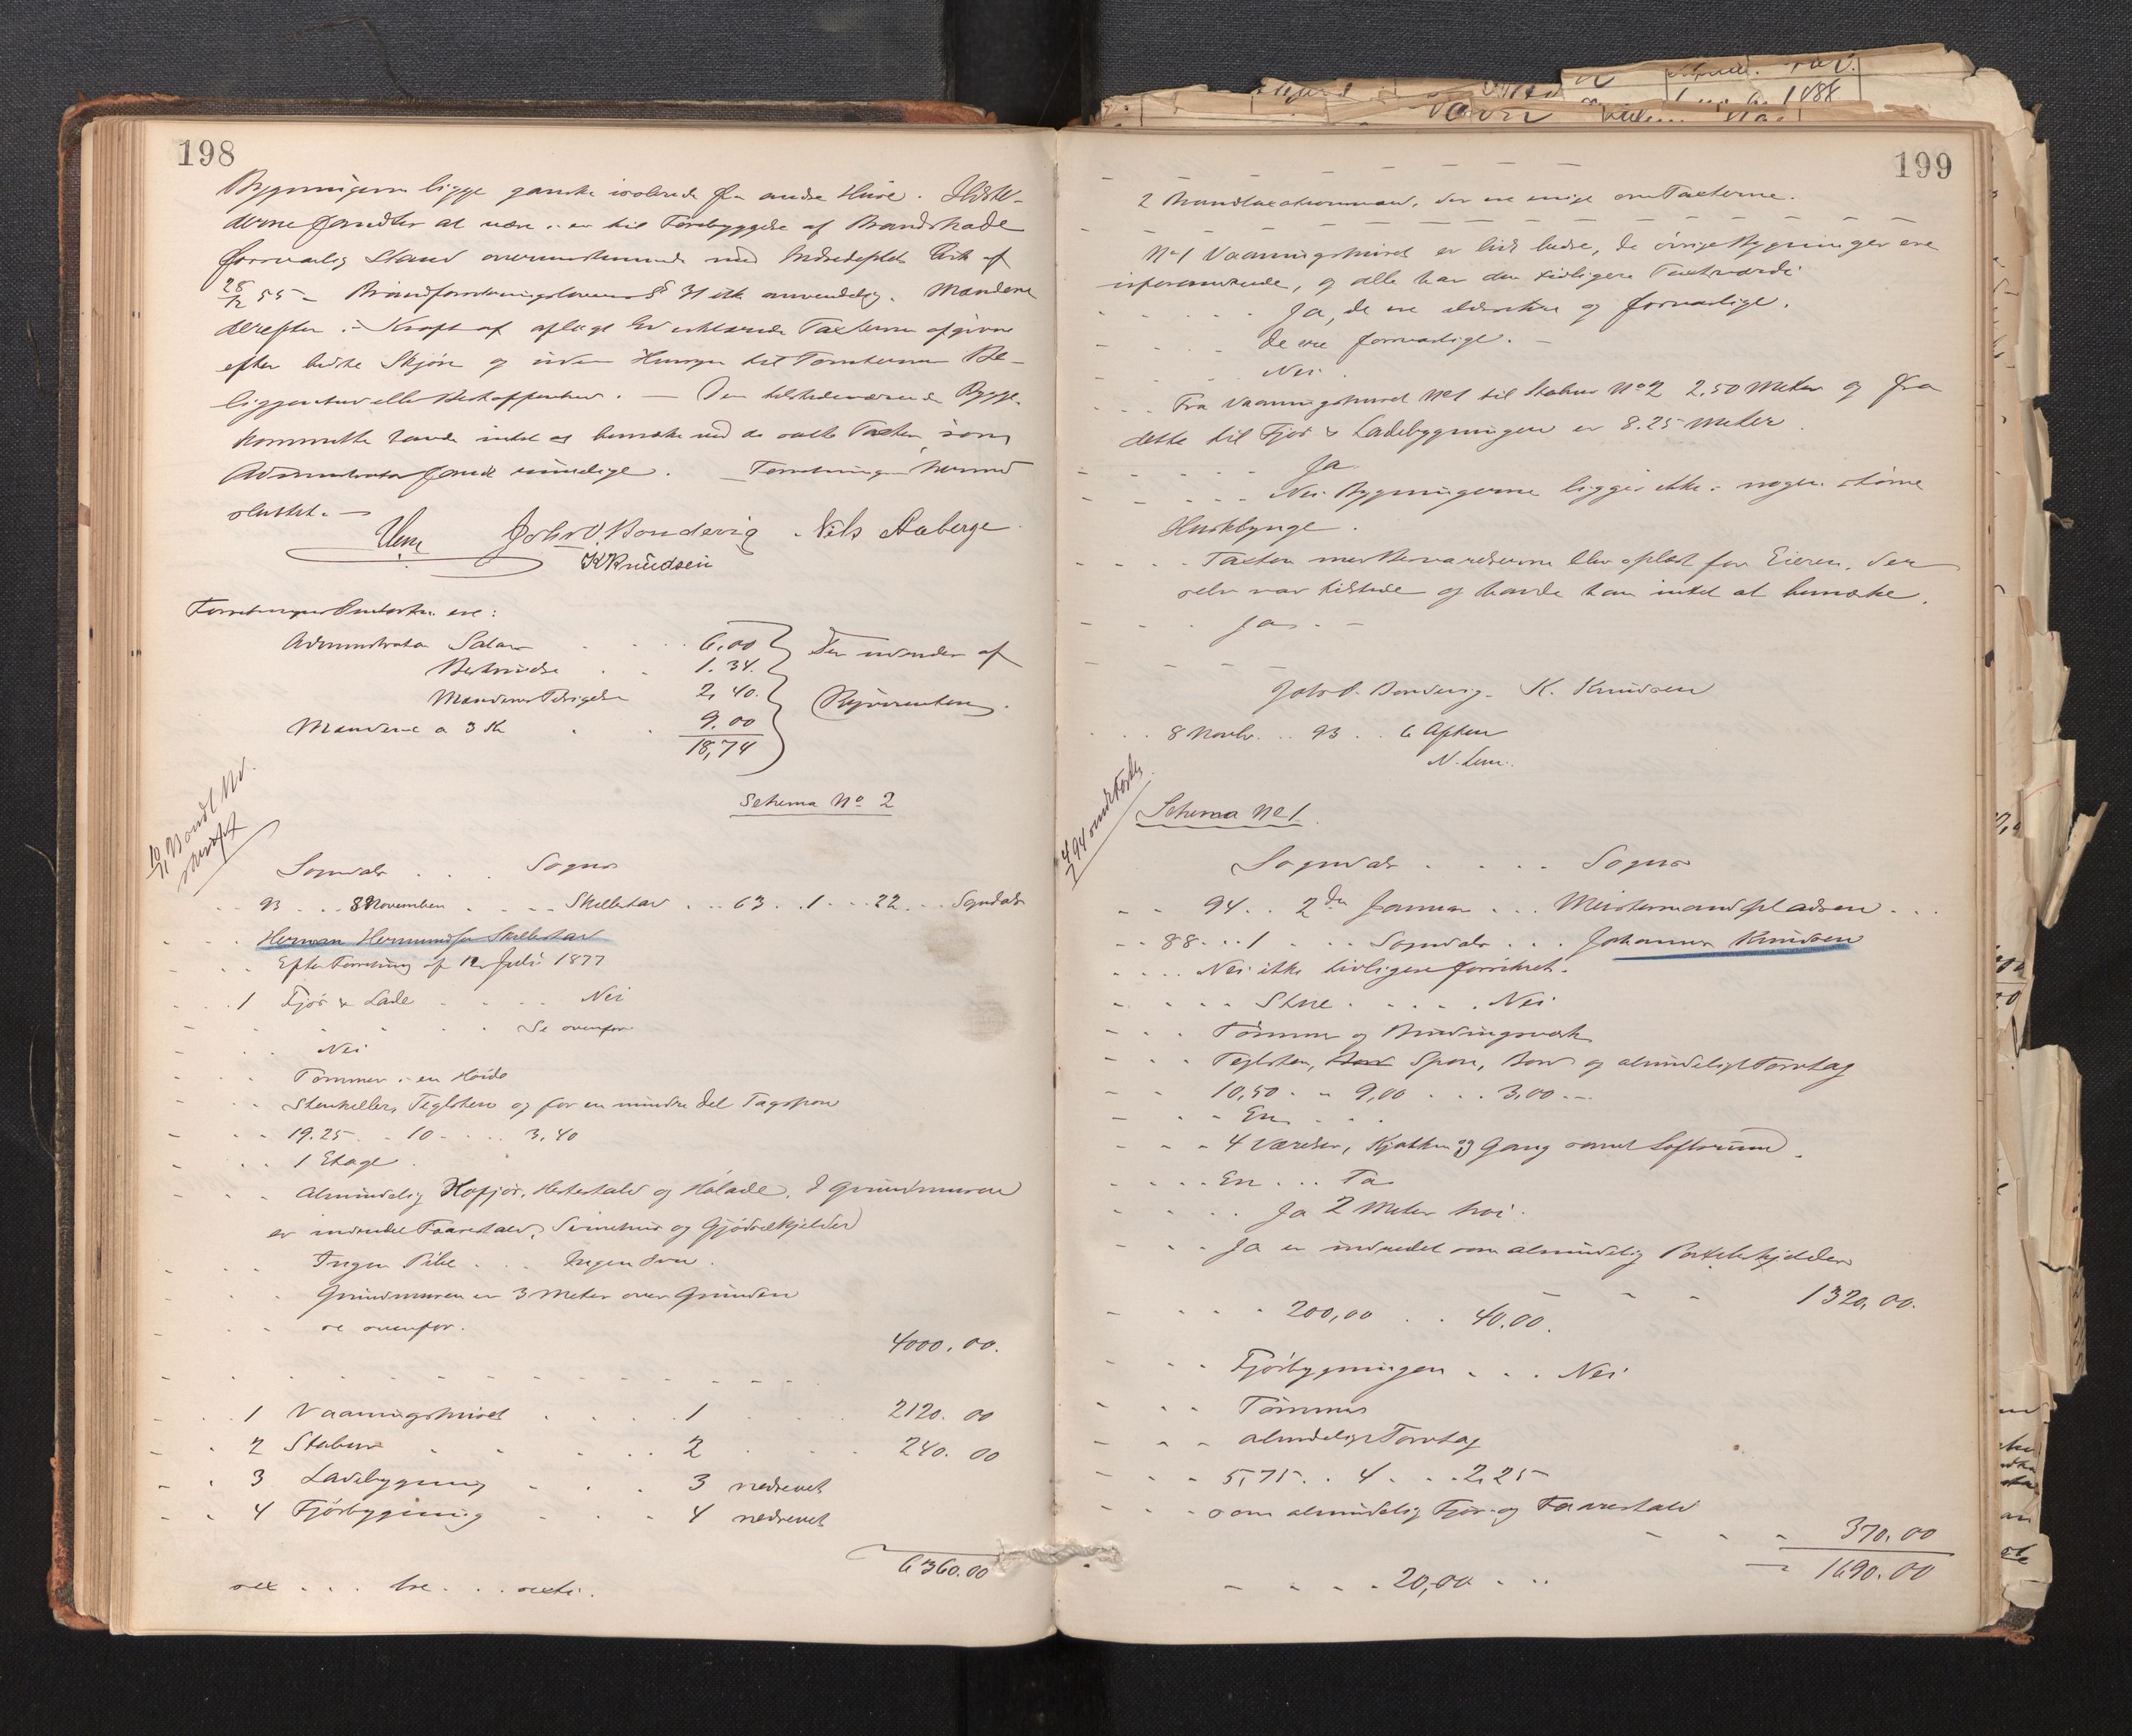 198
Bygningerne ligge ganske isolerede fra andre Huse. Ildste-
derne fandtes at være i en til Forebyggelse af Brandskade
forsvarlig Stand overensstemmende med Indredepts Cirk af
28/12 55 – Brandforsikringslovens § 31 ikke anvendelig. Mændene
derefter i Kraft af aflagt Ed erklærede Taxterne afgivne
efter bedste Skjøn og uden Hensyn til Tomternes Be-
liggenhed eller Beskaffenhed. — Den tilstedeværende Bygge-
kommitte havde intet at bemærke ved de satte Taxter, som
Administrator fandt rimelige. – Forretningen hermed
sluttet. —
Lem John O. Bondevig. Nils Aaberge.
K Knudsen
Forretningens Omkostn. ere:
Administrator Salær . . . 6,00
Beskrivelse . . 1.34. Der udredes af
Mændenes Edsigelse 2,40. Repræsentanten.
Mændene a 3 Kr . . 9.00
18,74
Schema No 2
Sogndals . . . Sogns
93 . . 8 November . . . Skjellestad . . 63 . . 1 . . 22 . . Sogndals
Herman Hermundsen Skjellestad
Efter Forretning af 12 Juli 1877
1 Fjøs & Lade . . . . Nei
. . . . Se ovenfor
Nei
Tømmer i en Høide
Stenheller, Teglsten og for en mindre del Tagspon
19.25 . . 10 . . . 3,40
1 Etage.
Almindelig Kofjøs, Hestestald og Hølade. I Grundmuren
er indredet Faarestald, Svinehus og Gjødselkjelder
Ingen Pibe . . . Ingen Ovn.
Grundmuren er 3 Meter over Grunden
se ovenfor.
4000.00.
1 Vaaningshuset . . . . 1 . . . 2120.00
2 Stabur . . . . . 2 . . . 240.00
3 Ladebygning . . . 3 nedrevet
4 Fjøsbygning . . . 4 nedrevet
6360.00
sex . . . tre . . . sexti.
199
2 Brandtaxationsmænd, der ere enige om Taxterne.
No 1 Vaaningshuset er lidt bedre, de øvrige Bygninger ere
uforandrede, og alle har den tidligere Taxtværdi
Ja, de ere ildsikre og forsvarlige.
De ere forsvarlige. –
Nei.
Fra Vaaningshuset No 1 til Stabur No 2 2,50 Meter og fra
dette til Fjøs & Ladebygningen er 8.25 Meter.
Ja
Nei Bygningerne ligger ikke i nogen større
Husklynge.
Taxten med Bemærkningerne blev oplæst for Eieren, der
selv var tilstede og havde han intet at bemærke.
Ja. –
John O. Bondevig. K. Knudsen
8 Novbr . . 93 . . 6 Aften
N. Lem.
Schema No 1.
Sogndals . . . . Sogns
94 . . 2den Januar . . . Meistermandspladsen . . .
88 . . . 1 . . . Sogndals . . . Johannes Knudsen
Nei ikke tidligere forsikret.
Stue . . . . . Nei
Tømmer og Bindingsværk
Teglsten, Spon, Bord og almindeligt Torvtag
10,50 . . 9,00 . . . 3,00 . –
En . . .
4 Værelser, Kjøkken og Gang samt Loftsrum.
En . . . To
Ja 2 Meter høi.
Ja er indredet som almindelig Poteteskjelder
1320,00.
200,00 . . 40.00.
Fjøsbygningen . . . Nei
Tømmer
almindeligt Torvtag
5,75 . . 4 . . . 2,25
som almindelig Fjøs- og Faarestald
370.00
1690.00
20,00 . . .